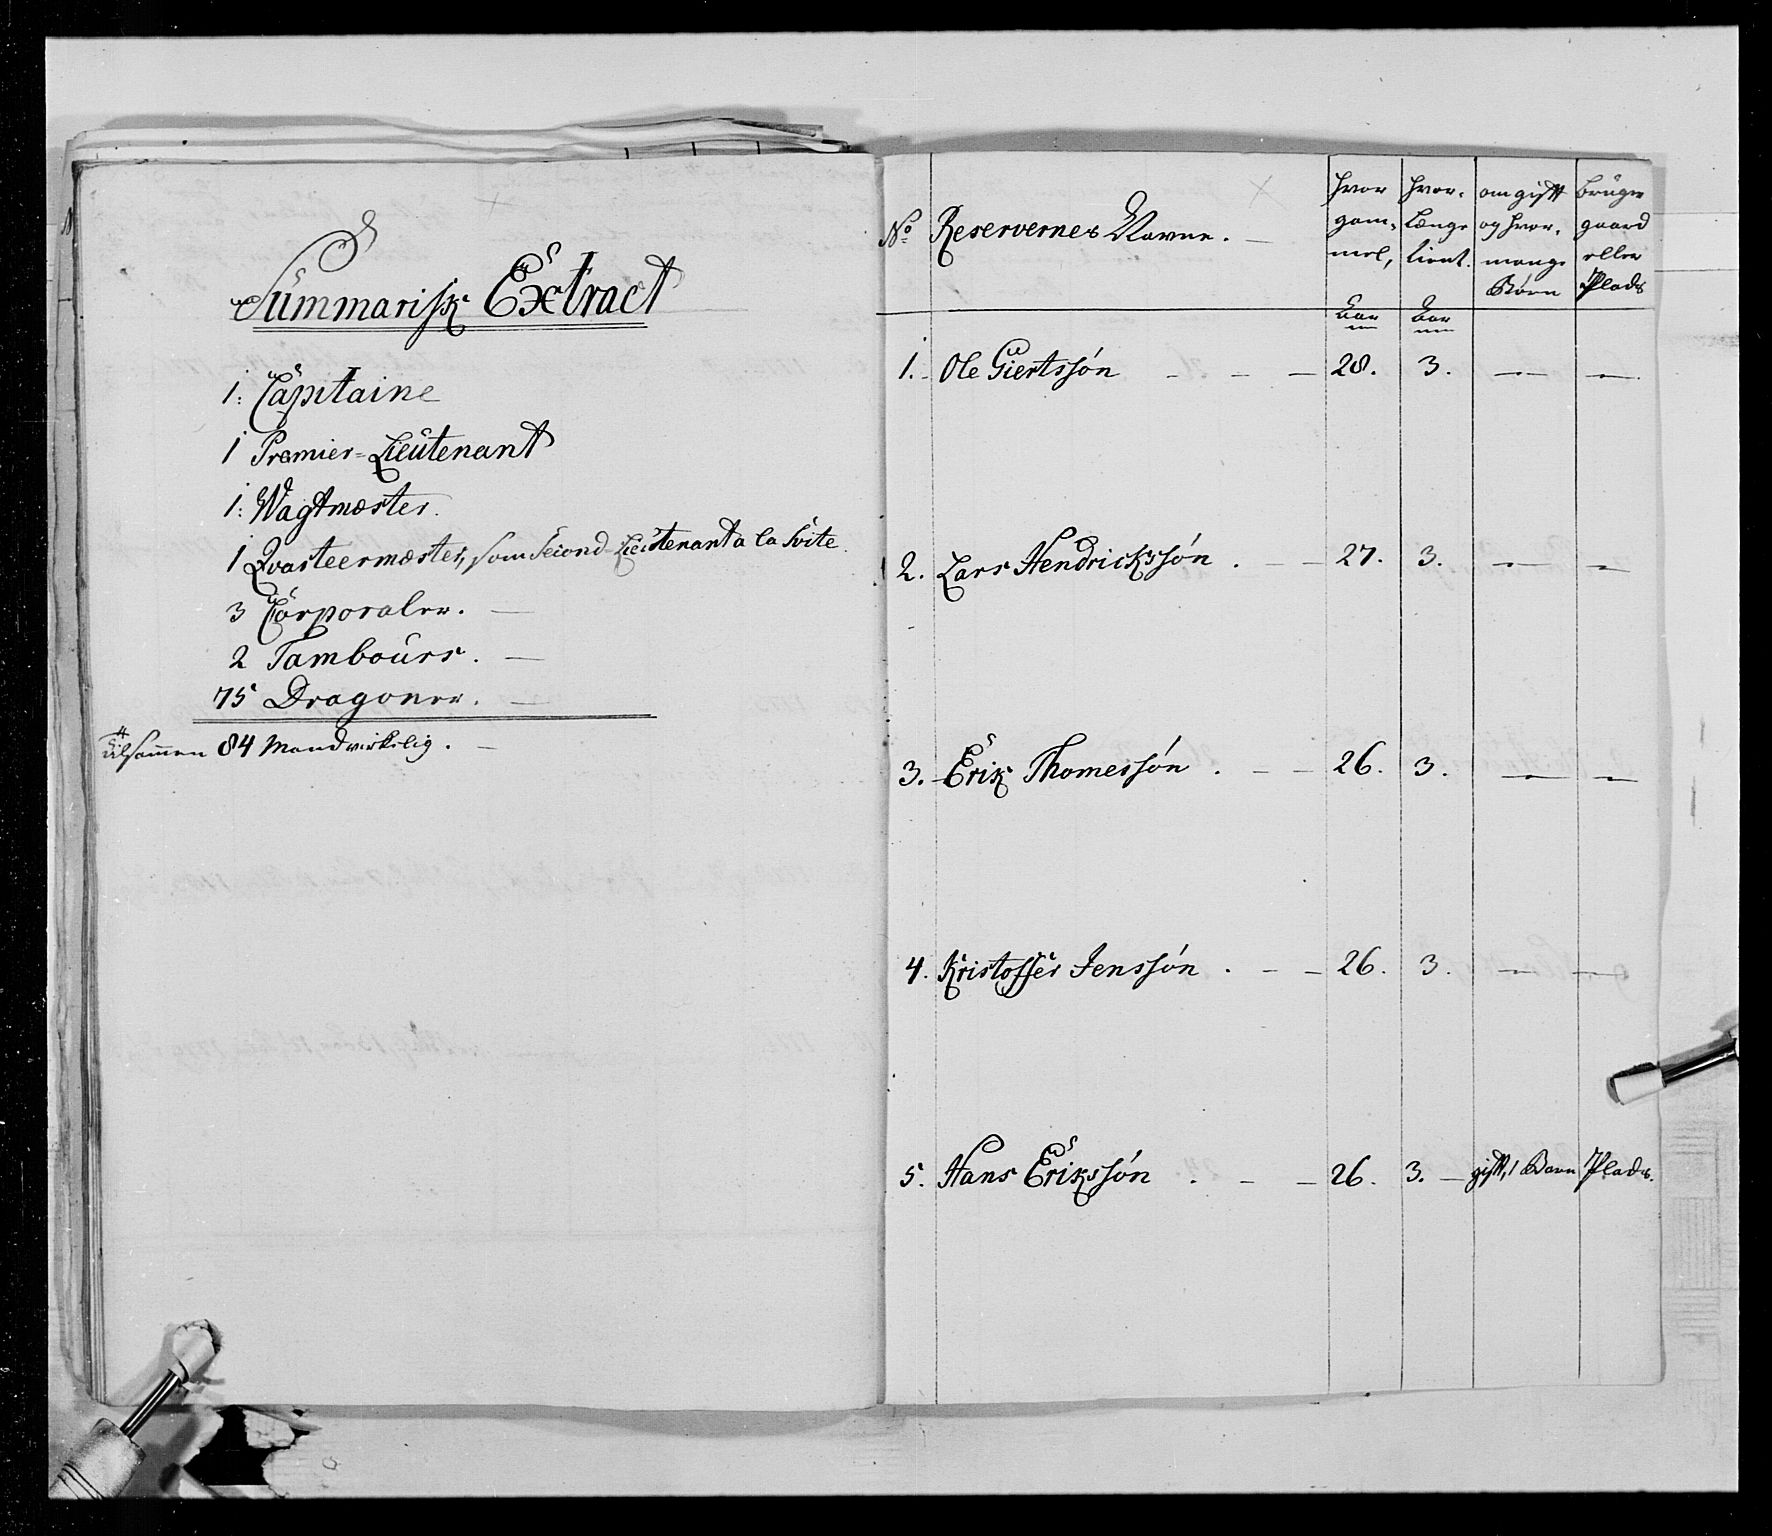 Summarisk Extract
1: Capitaine
1 Premier-Lieutenant
1: Wagtmæster.
1 Qvarteermæster, som Second-Lieutenant a la Svite.
3 Corporaler. —
2 Tambours. —
75 Dragoner. —
Tilsammen 84 Mand virkelig. —
No Reservernes Navne. — hvor gam- mel, hvor- længe tient. om gift og hvor- mange Børn bruger gaard eller Plads
Aar Aar
1. Ole Giertssøn — — — 28. 3. — —
2. Lars Hendrickssøn . — — 27. 3. — —
3. Erik Thomessøn . — — 26. 3. — —
4. Kristoffer Jenssøn . — — 26. 3. — —
5. Hans Erikssøn . — — 26. 3. — gift, 1 Barn Plads.